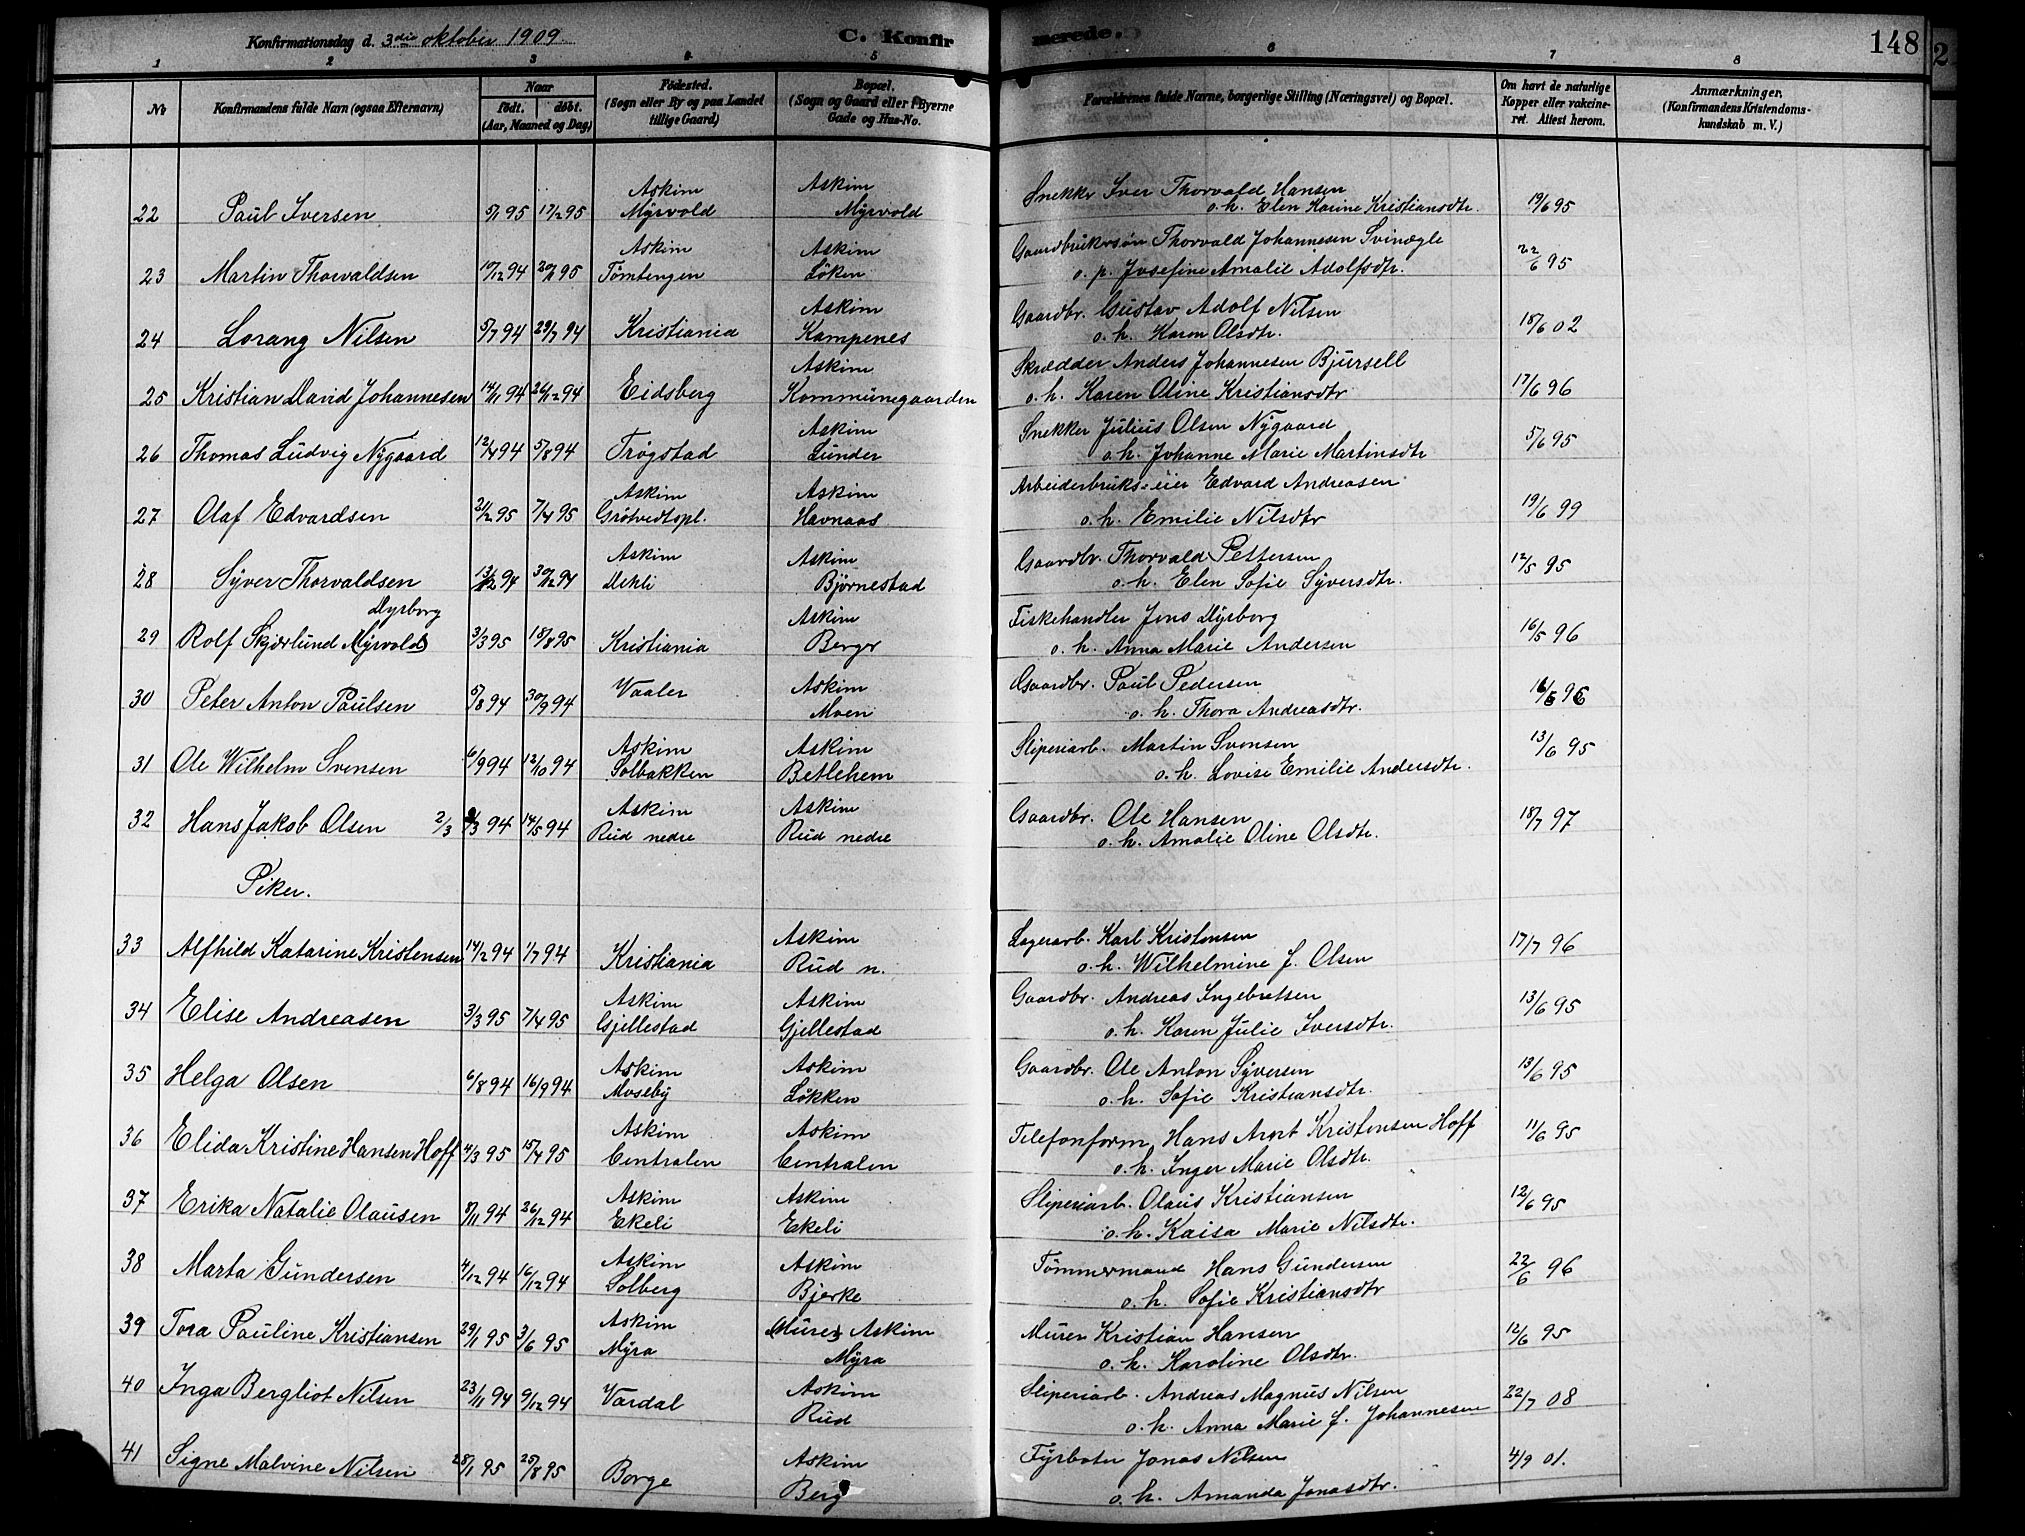 Konfirmationsdag d. 3die oktober 1909
C. Konfirmerede.
148
1 2 3 4 5 6 7 8
No Konfirmandens fulde Navn (ogsaa Efternavn) Naar født. døbt. (Aar, Maaned og Dag) Fødested. (Sogn eller By og paa Landet tillige Gaard) Bopæl. (Sogn og Gaard eller i Byerne Gade og Hus-No. Forældrenes fulde Navne, borgerlige Stilling (Næringsvei) og Bopæl. Om havt de naturlige Kopper eller vakcineret. Attest herom. Anmærkninger, (Konfirmandens Kristendomskundskab m. V.)
Askim Askim Snekker Iver Thorvald Hansen
22 Paul Iversen 5/1 95 17/2 95 Myrvold Myrvold o.h. Elen Karine Kristiansdtr. 19/6 95
Askim Askim Gaardbrukersøn Thorvald Johannesen Svinægle
23 Martin Thorvaldsen 10/12 94 95 Tømtengen Løken o. p. Josefine Amalie Adolfsdtr. 22/6 95
Askim Gaardbr. Gustav Adolf Nilsen
24 Lorang Nilsen 5/7 94 29/7 94 Kristiania Kampenes o. h. Karen Olsdtr. 18/6 02
Askim Skrædder Anders Johannesen Bjursell
25 Kristian David Johannesen 14/11 94 26/12 94 Eidsberg Kommunegaarden o. h. Karen Oline Kristiansdtr 17/6 96
Askim Snekker Julius Olsen Nygaard
26 Thomas Ludvig Nygaard 12/4 94 5/8 94 Trøgstad Lunder o.h. Johanne Marie Martinsdtr 5/6 95
Askim Askim Arbeiderbruks-eier Edvard Andreasen
27 Olaf Edvardsen 2/2 95 7/4 95 Grøtvedtspl. Havnaas o.h. Emilie Nilsdtr 19/6 99
Askim Askim Gaardbr. Thorvald Pettersen
28 Syver Thorvaldsen 13/12 94 30/12 94 Dehli Bjørnestad o.h. Elen Sofie Syversdtr. 12/5 95
Dyrborg Askim Fiskehandler Jens Dyrborg
29 Rolf Skjærlund Myrvold 3/3 95 18/8 95 Kristiania Berger o. h. Anna Marie Andersen 16/5 96
Askim Gaardbr. Paul Pedersen
30 Peter Anton Paulsen 5/8 94 30/9 94 Vaaler Moen o. h. Thora Andreasdtr. 96
Askim Askim Sliperiarb. Martin Svensen
31 Ole Wilhelm Svensen 6/9 94 12/10 94 Solbakken Betlehem o.h. Lovise Emilie Andersdtr. 13/6 95
Askim Askim Gaardbr. Ole Hansen
32 Hans Jakob Olsen 2/3 2/3 94 14/5 94 Rud nedre Rud nedre o.h. Amalie Oline Olsdtr. 18/7 97
Piker.
Askim Lagerarb. Karl Kristensen
33 Alfhild Katarine Kristensen 14/2 94 1/7 94 Kristiania Rud n. o.h. Wilhelmine f. Olsen 17/7 96
Askim Askim Gaardbr. Andreas Ingebretsen
34 Elise Andreasen 3/3 95 7/4 95 Gjellestad Gjellestad o.h. Karen Julie Iversdtr. 13/6 95
Askim Askim Gaardbr. Ole Anton Syversen
35 Helga Olsen 6/8 94 16/9 94 Moseby Løkken o.h. Sofie Kristiansdtr. 13/6 95
Askim Askim Telefonform. Hans Arnt Kristensen Hoff
36 Elida Kristine Hansen Hoff 4/3 95 15/4 95 Centralen Centralen o.h. Inger Marie Olsdtr. 11/6 95
Askim Askim Sliperiarb. Olaus Kristiansen
37 Erika Natalie Olausen 8/11 94 26/12 94 Ekeli Ekeli o.h. Kaisa Marie Nilsdtr. 12/6 95
Askim Askim Tømmermand Hans Gundersen
38 Marta Gundersen 4/12 94 16/12 94 Solberg Bjerke o.h. Sofie Kristiansdtr 22/6 96
Askim Askim Murer Kristian Hansen
39 Tora Pauline Kristiansen 29/1 95 3/6 95 Myra Myra o.h. Karoline Olsdtr. 12/6 95
Askim Sliperiarb. Andreas Magnus Nilsen
40 Inga Bergliot Nilsen 23/11 94 9/12 94 Vardal Rud o.h. Anna Marie f. Johannesen 22/7 08
Askim Fyrbøter Jonas Nilsen
41 Signe Malvine Nilsen 28/1 95 25/8 95 Borge Berg o.h. Amanda Jonasdtr. 4/9 01.